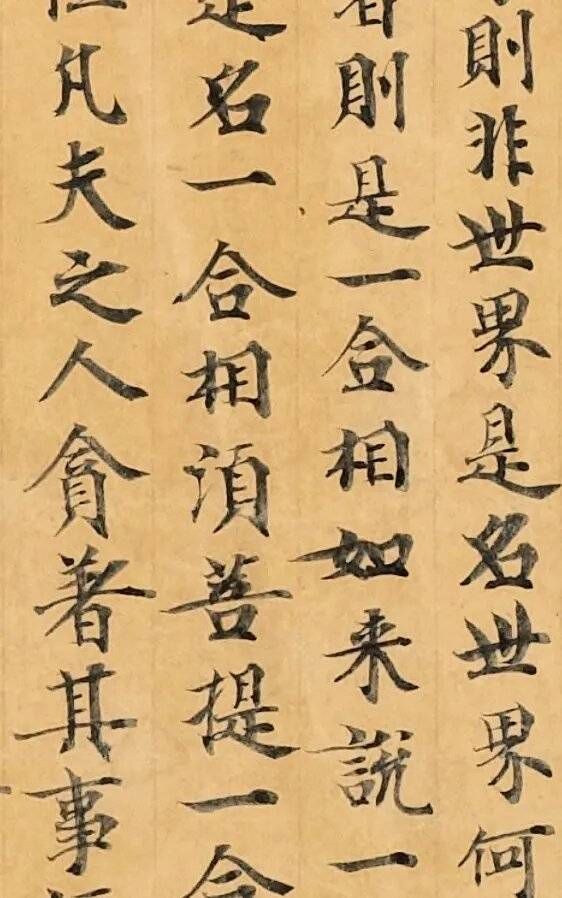 則非世界是名世界何
者則是一合相如来説一
是名一合相須菩提一合
但凡夫之人貪著其事